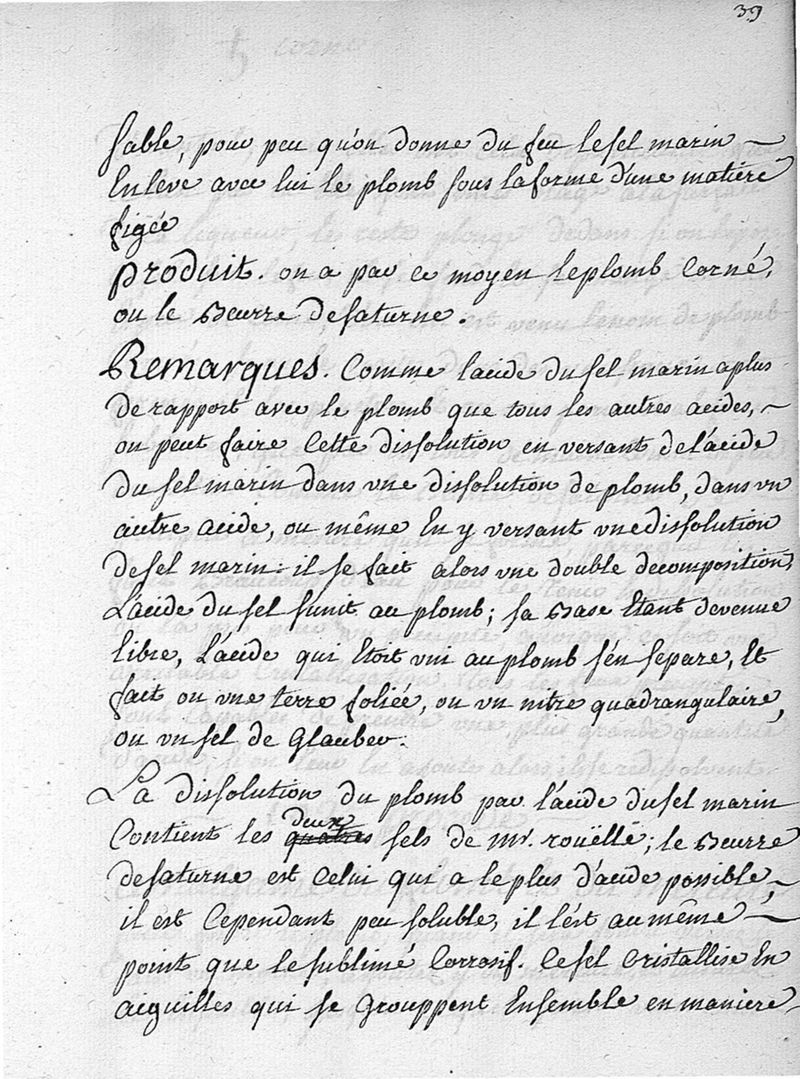 39
sable, pour peu qu'on donne du feu le sel marin
Enleve avec lui le plomb sous la forme d'une matiére
figée
Produit. on a par ce moyen le plomb Corné,
ou le Beurre de saturne.
Remarques. Comme lacide du sel marin a plus
de rapport avec le plomb que tous les autres acides,
on peut faire Cette dissolution en versant de l'acide
du sel marin dans une dissolution de plomb, dans un
autre acide, ou même En y versant une dissolution
de sel marin. il se fait alors une double decomposition,
L'acide du sel s'unit au plomb; sa Base Etant devenue
libre, L'acide qui Etoit uni au plomb s'en separe, Et
fait ou une terre foliée, ou un nitre quadrangulaire,
ou un sel de Glauber.
La dissolution du plomb par l'acide du sel marin
deux
Contient les quatres sels de mr. rouëlle; le Beurre
de saturne est Celui qui a le plus d'acide possible,
il est Cependant peu soluble, il l'est au même
point que le sublimé Corrosif. Ce sel Cristallise En
aiguilles qui se Grouppent Ensemble en maniere